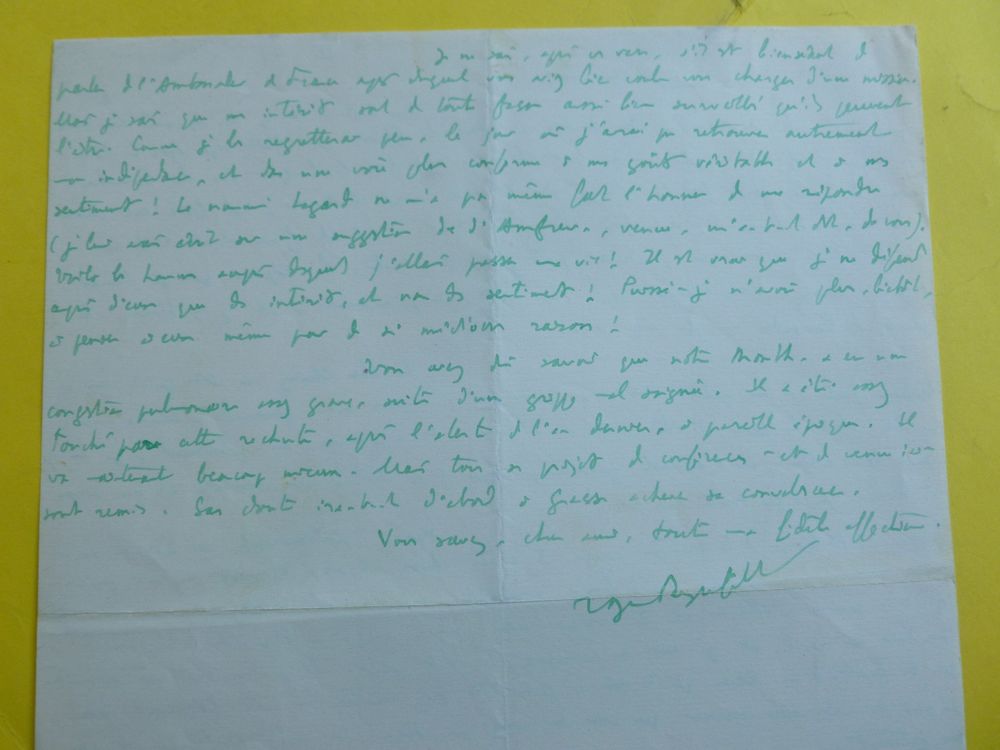 Je ne sais, après ces vers, s'il est bienséant de
parler de l'Ambassade de France auprès duquel vous aviez bien voulu vous charger d'une mission.
Mais je sais que mes intérêts sont de toute façon aussi bien surveillés qu'ils peuvent
l'être. Comme je les regretterai peu, le jour où j'aurai pu retrouver autrement
mon indépendance, et dans une voie plus conforme à mes goûts véritables et à mes
sentiments ! Le nommé ne m'a pas même fait l'honneur de me répondre
(je lui avais écrit sur une suggestion de d' , venue, m'a-t-il dit, de vous).
Voilà les hommes auprès desquels j'allais passer ma vie ! Il est vrai que je ne défends
auprès d'eux que des intérêts, et non des sentiments ! Puissé-je n'avoir plus, bientôt,
à penser à eux même pour de si médiocres raisons !
Vous avez dû savoir que notre Month. a eu une
congestion pulmonaire assez grave, suite d'une grippe mal soignée. Il a été assez
touché par cette rechute, après l'alerte de l'an dernier, à pareille époque. Il
va maintenant beaucoup mieux. Mais tous ses projets de conférences et de venue ici
sont remis. Sans doute ira-t-il d'abord à Grasse achever sa convalescence.
Vous savez, cher ami, toute ma fidèle affection.
Roger Peyrefitte